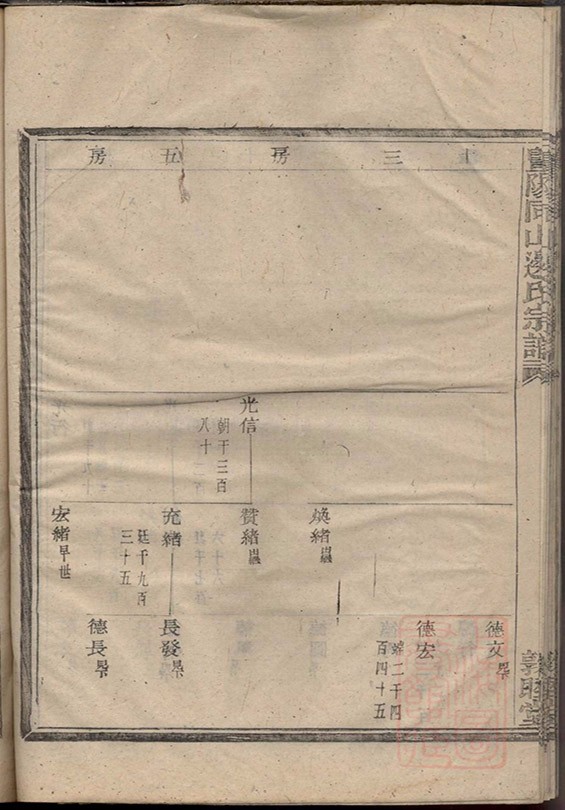 暨陽同山邊氏宗譜
敦睦堂
十三房 五房
光信
朝千三百
八十
煥緒
贊緒
充緒
廷千九百
三十五
宏緒早世
德文
德宏
二千四
百四十五
長發
德長